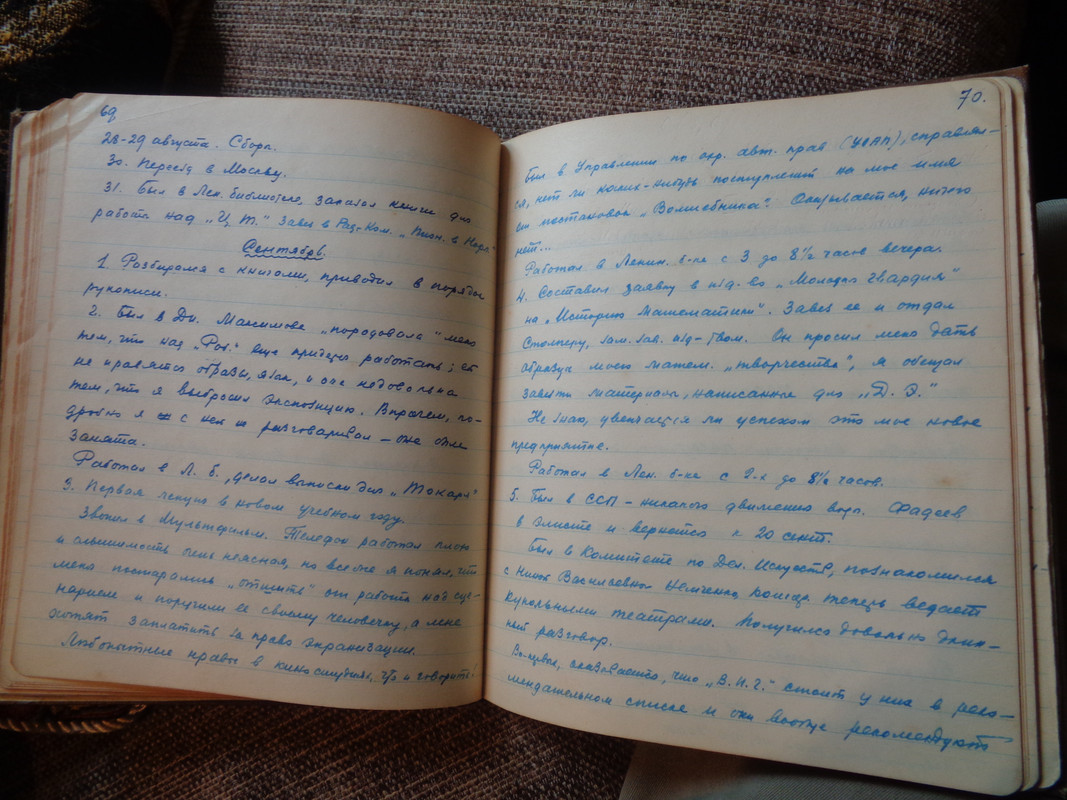 69
28-29 августа. Сборы.
30. Переезд в Москву.
31. Был в Лен. библиотеке, заказал книги для
работы над „Ц. Т." Завез в Рад. Ком. „Визн. в Коре"
Сентябрь.
1. Разбирался с книгами, приводил в порядок
рукописи.
2. Был в Дн. Максимова „порадовала" меня
тем, что над „Роб." еще придется работать; ей
не нравятся образы, язык, и она недовольна
тем, что я выбросил экспозицию. Впрочем, по-
дробно я с ней не разговаривал – она была
занята.
Работал в Л. Б., делал выписки для „Токаря"
3. Первая лекция в новом учебном году.
Звонил в Мультфильм. Телефон работал плохо
и слышимость очень неясная, но все же я понял, что
меня постарались „отшить" от работы над сце-
нарием и поручили ее своему человечку, а мне
хотят заплатить за право экранизации.
Любопытные нравы в киностудиях, что и говорить!
70.
Был в Управлении по охр. авт. прав (УОАП), справлял-
ся, нет ли каких-нибудь поступлений на мое имя
от постановок „Волшебника". Оказывается, ничего
нет...
Работал в Ленин. б-ке с 3 до 8½ часов вечера.
4. Составил заявку в изд-во „Молодая Гвардия"
на „Историю Математики". Завез ее и отдал
Столперу, зам. зав. изд-твом. Он просил меня дать
образцы моего матем. „творчества", я обещал
завезти материалы, написанные для „Д. Э."
Не знаю, увенчается ли успехом это мое новое
предприятие.
Работал в Лен. б-ке с 2-х до 8½ часов.
5. Был в ССП – никакого движения воды. Фадеев
в Элисте и вернется к 20 сент.
Был в Комитете по Дел. Искусств, познакомился
с Ниной Васильевной Немченко, которая теперь ведает
кукольными театрами. Получился довольно длин-
ный разговор.
Во-первых, оказывается, что „В. И. Г." стоит у них в реко-
мендательном списке и они вообще рекомендуют